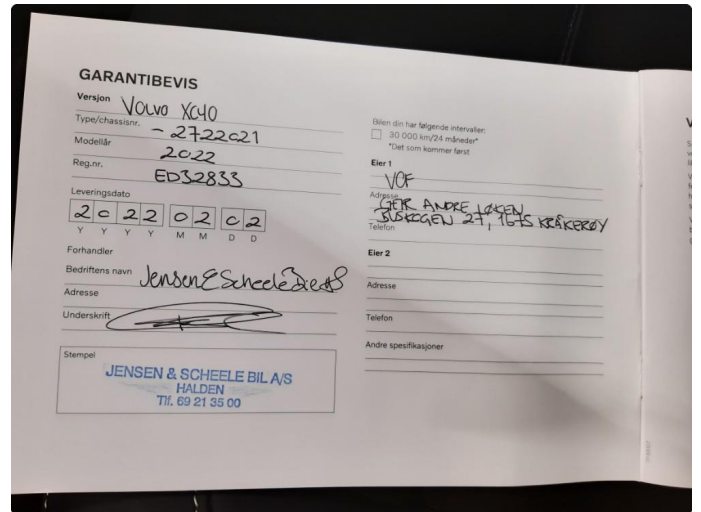 GARANTIBEVIS
Versjon Volvo XC40
Type/chassisnr. - 2722021
Modellår 2022
Reg.nr. ED32833
Leveringsdato
2022 02 02
Y Y Y Y M M D D
Forhandler
Bedriftens navn Jensen & Scheele
Adresse
Underskrift
Stempel
JENSEN & SCHEELE BIL A/S
HALDEN
Tlf. 69 21 35 00
Bilen din har følgende intervaller:
30 000 km/24 måneder*
*Det som kommer først
Eier 1
VOF
Adresse GEIR ANDRE LØKEN
BUSKOGEN 27, 1675 KRÅKERØY
Telefon
Eier 2
Adresse
Telefon
Andre spesifikasjoner